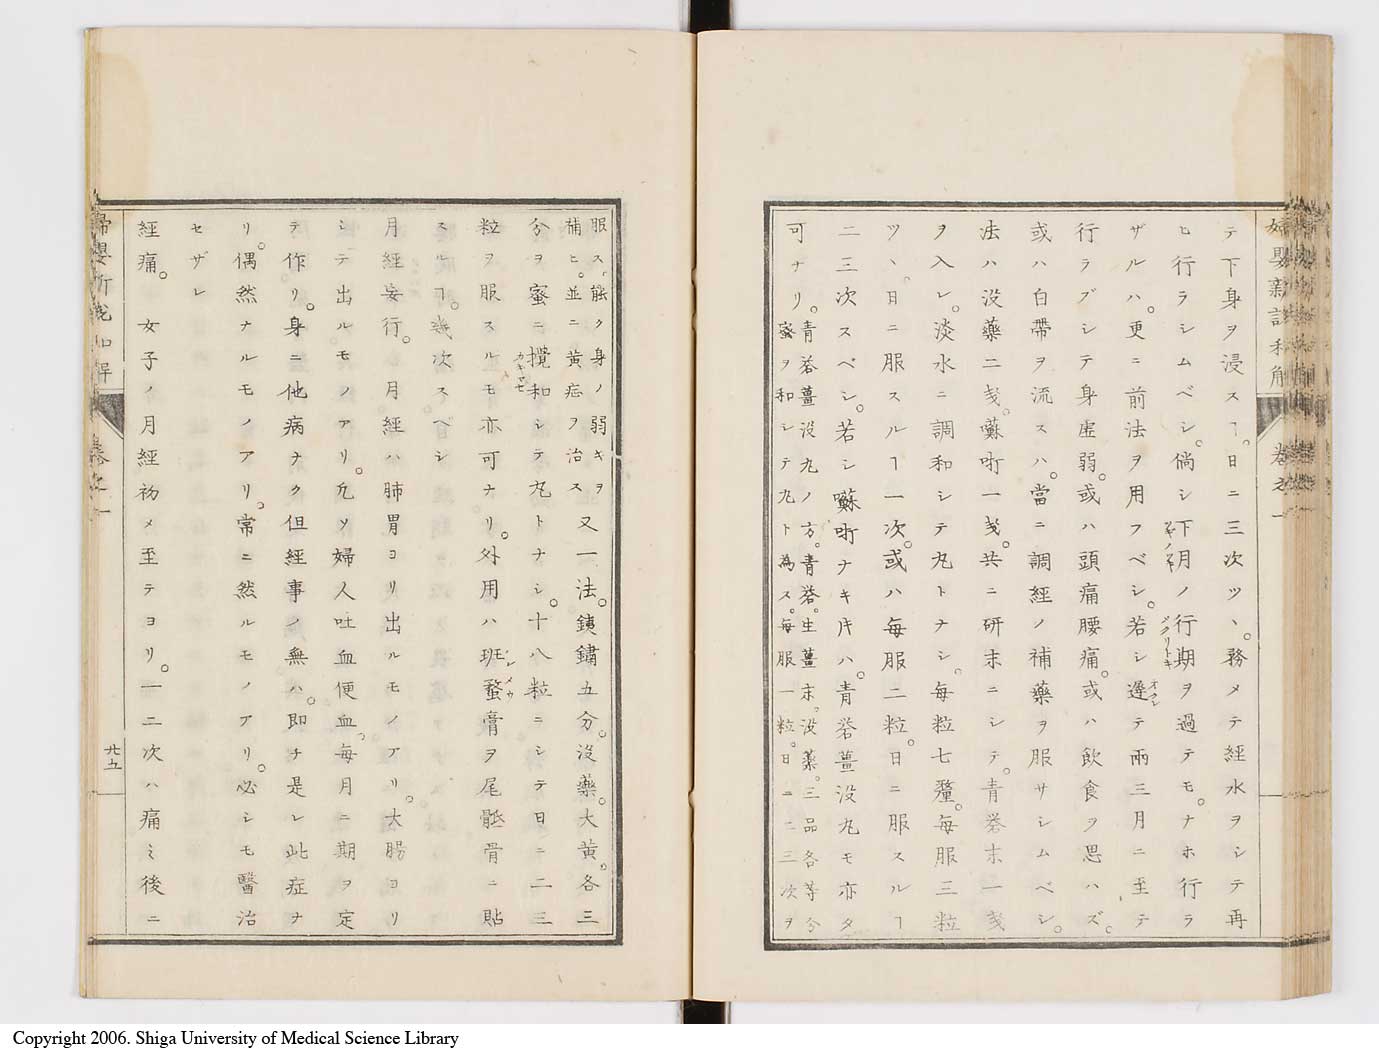 婦嬰新説和解
卷之一
テ下身ヲ浸スヿ。日ニ三次ツヽ。務メテ經水ヲシテ再
ヒ行ラシムベシ。倘シ下月ノ行期ヲ過テモ。ナホ行ラ
メクリトキ
ザルハ。更ニ前法ヲ用フベシ。若シ遲テ兩三月ニ至テ
行ラブシテ身虚弱。或ハ頭痛腰痛。或ハ飲食ヲ思ハズ。
或ハ白帶ヲ流スハ。當ニ調經ノ補藥ヲ服サシムベシ。
法ハ没藥二戔。蘇𠯗一戔。共ニ研末ニシテ。青礬末一戔
ヲ入レ。淡水ニ調和シテ丸トナシ。每粒七釐。每服三粒
ツヽ、日ニ服スルヿ一次。或ハ每服二粒。日ニ服スルヿ
二三次スベシ。若シ嘛𠯗ナキ片ハ。青礬薑没丸モ亦タ
可ナリ。
青礬薑没丸ノ方。青礬。生薑末。没藥。三品各等分
蜜ヲ和シテ丸ト為ス。每服一粒。日ニ二三次ヲ
服ス、能ク身ノ弱キヲ
補ヒ。並ニ黄疸ヲ治ス
又一法。銕鏽五分。没藥。大黄。各三
分ヲ蜜ニ攪和シテ丸トナシ。十八粒ニシテ日ニ二三
カキマセ
粒ヲ服スルモ亦可ナリ。外用ハ斑蝥膏ヲ尾骶骨ニ貼
スルヿ。幾次スベシ
月經妄行。月經ハ肺胃ヨリ出ルモノアリ。大腸ヨリ
シテ出ルモノアリ。凢ソ婦人吐血便血。每月ニ期ヲ定
テ作リ。身ニ他病ナク但經事ノ無ハ。即チ是レ此症ナ
リ。偶然ナルモノアリ。常ニ然ルモノアリ。必シモ醫治
セザレ
經痛。女子ノ月經初メ至テヨリ。一二次ハ痛ミ後ニ
婦嬰新説和解
卷之一
廿五